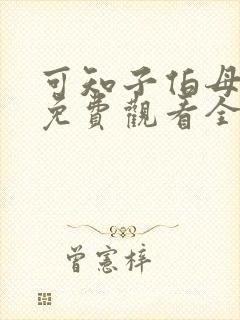 可知子伯母
免費觀看全
曾憲梓